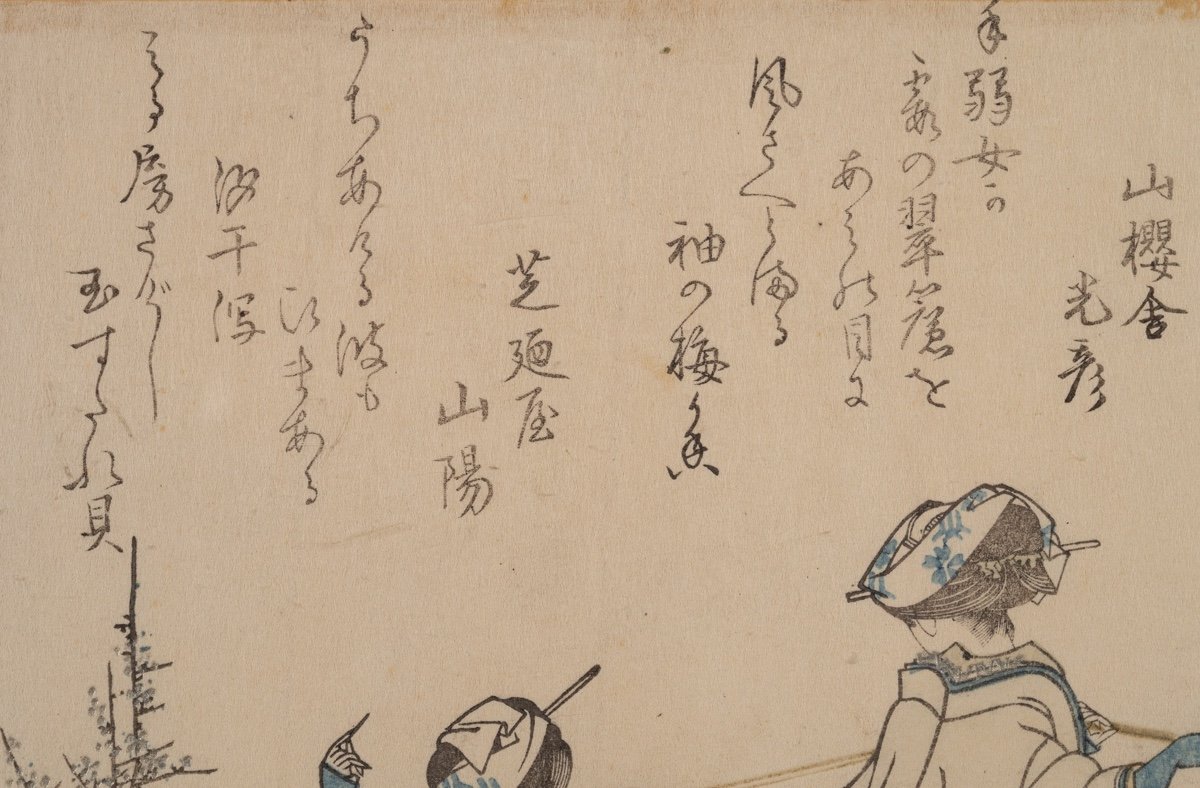 山櫻舎
光彦
手弱女か
霞の翠簾を
あみの目に
風さへとまる
袖の梅香
芝廼屋
山陽
うちあくる波も
ひまある
汐干潟
みる房さがし
玉すたれ貝